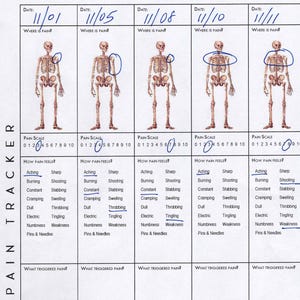 PAIN TRACKER
DATE: 11/01
DATE: 11/05
DATE: 11/08
DATE: 11/10
DATE: 11/11
WHERE IS PAIN?
WHERE IS PAIN?
WHERE IS PAIN?
WHERE IS PAIN?
WHERE IS PAIN?
PAIN SCALE
PAIN SCALE
PAIN SCALE
PAIN SCALE
PAIN SCALE
0 1 2 3 4 5 6 7 8 9 10
0 1 2 3 4 5 6 7 8 9 10
0 1 2 3 4 5 6 7 8 9 10
0 1 2 3 4 5 6 7 8 9 10
0 1 2 3 4 5 6 7 8 9 10
HOW PAIN FEELS?
Aching Sharp
Burning Shooting
Constant Stabbing
Cramping Swelling
Dull Throbbing
Electric Tingling
Numbness Weakness
Pins & Needles
HOW PAIN FEELS?
Aching Sharp
Burning Shooting
Constant Stabbing
Cramping Swelling
Dull Throbbing
Electric Tingling
Numbness Weakness
Pins & Needles
HOW PAIN FEELS?
Aching Sharp
Burning Shooting
Constant Stabbing
Cramping Swelling
Dull Throbbing
Electric Tingling
Numbness Weakness
Pins & Needles
HOW PAIN FEELS?
Aching Sharp
Burning Shooting
Constant Stabbing
Cramping Swelling
Dull Throbbing
Electric Tingling
Numbness Weakness
Pins & Needles
HOW PAIN FEELS?
Aching Sharp
Burning Shooting
Constant Stabbing
Cramping Swelling
Dull Throbbing
Electric Tingling
Numbness Weakness
Pins & Needles
WHAT TRIGGERED PAIN?
WHAT TRIGGERED PAIN?
WHAT TRIGGERED PAIN?
WHAT TRIGGERED PAIN?
WHAT TRIGGERED PAIN?